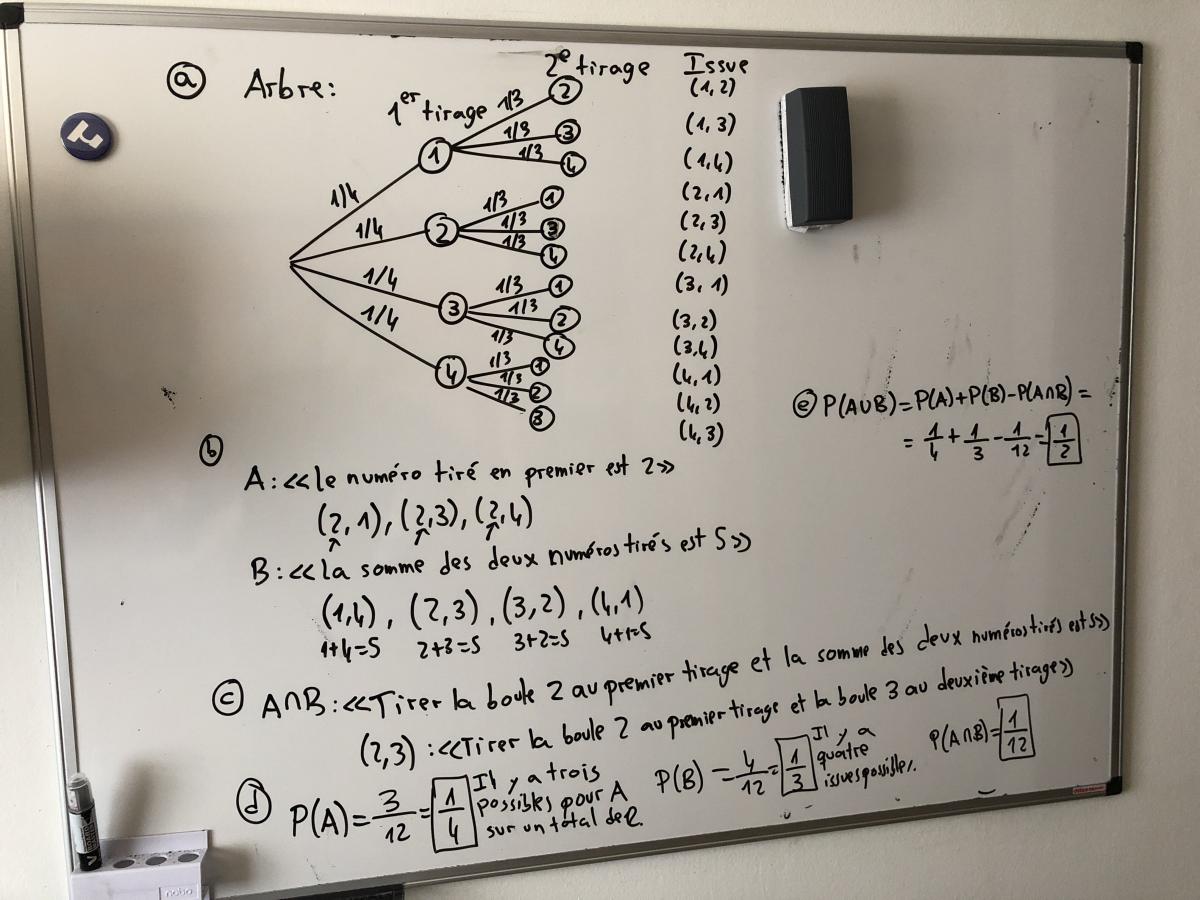 ⓐ Arbre:
1er tirage 2e tirage Issue
1/4 1 1/3 2 (1,2)
1/3 3 (1,3)
1/3 4 (1,4)
1/4 2 1/3 1 (2,1)
1/3 3 (2,3)
1/3 4 (2,4)
1/4 3 1/3 1 (3,1)
1/3 2 (3,2)
1/3 4 (3,4)
1/4 4 1/3 1 (4,1)
1/3 2 (4,2)
1/3 3 (4,3)
ⓑ
A: <<le numéro tiré en premier est 2>>
(2,1), (2,3), (2,4)
B: <<la somme des deux numéros tirés est 5>>
(1,4), (2,3), (3,2), (4,1)
1+4=5 2+3=5 3+2=5 4+1=5
ⓒ A∩B: <<Tirer la boule 2 au premier tirage et la somme des deux numéros tirés est 5>>
(2,3): <<Tirer la boule 2 au premier tirage et la boule 3 au deuxième tirage>>
ⓓ P(A)=3/12=1/4
Il y a trois
possibles pour A
sur un total de
P(B)=4/12=1/3
Il y a
quatre
issues possibles.
P(A∩B)=1/12
ⓔ P(A∪B)=P(A)+P(B)-P(A∩B)=
=1/4+1/3-1/12=1/2
nobo